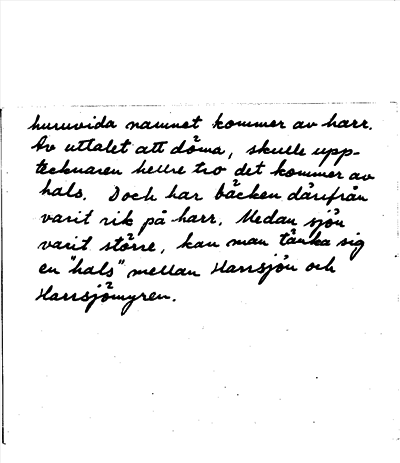 huruvida namnet kommer av harr.
Av uttalet att döma, skulle upp-
tecknaren hellre tro det kommer av
hals. Doch har bäcken därifrån
varit rik på harr. Medan sjön
varit större, kan man tänka sig
en "hals" mellan Harrsjön och
Harrsjömyren.